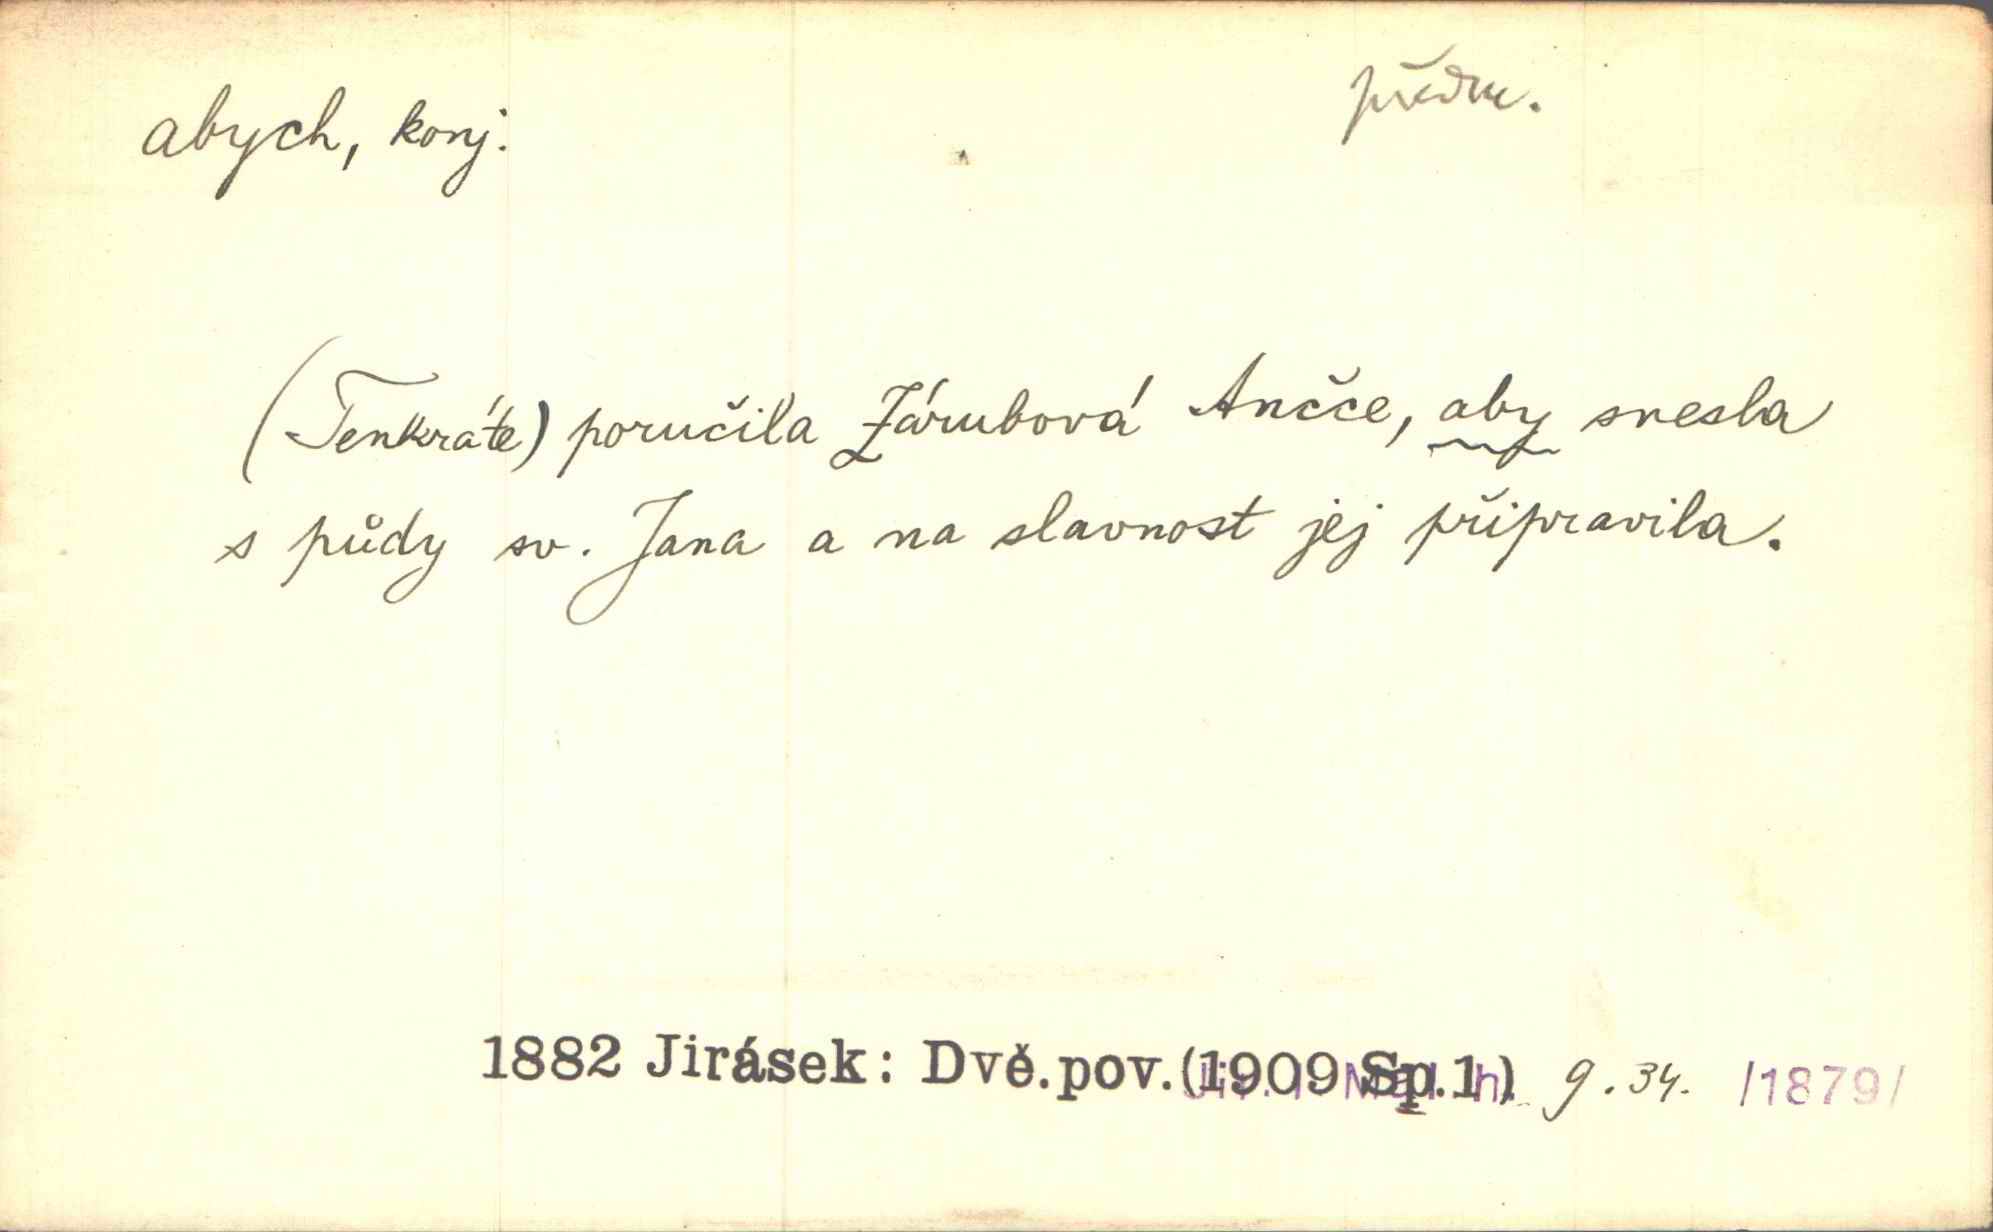 předm.
abych, konj.
(Tenkráte) poručila Zárubová Ančce, aby snesla
s půdy sv. Jana a na slavnost jej připravila.
1882 Jirásek: Dvě.pov.(1909 Sp.1) 9.34. /1879/